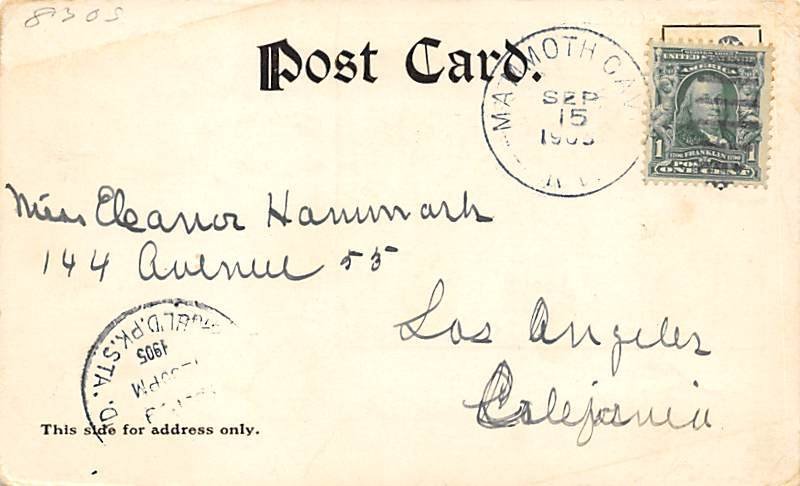 8305
Post Card.
MAMMOTH CAV
SEP
15
1905
UNITED STATES OF
AMERICA
1 1
FRANKLIN
ONE CENT
Miss Eleanor Hammark
144 Avenue 55
Los Angeles
California
PK. STA.
1905
PM
This side for address only.